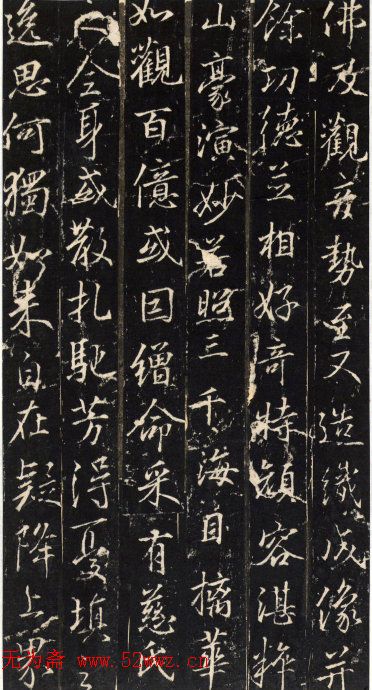 佛及觀音勢至又造織成像并
餘功德並相好奇特顏容湛粹
山豪演妙若照三千海目摛華
如觀百億或因繒命采有慈氏
之全身或散扎馳芳得憂填之
逸思何獨如来自在疑降上界
无为斋 www.52wwz.cn